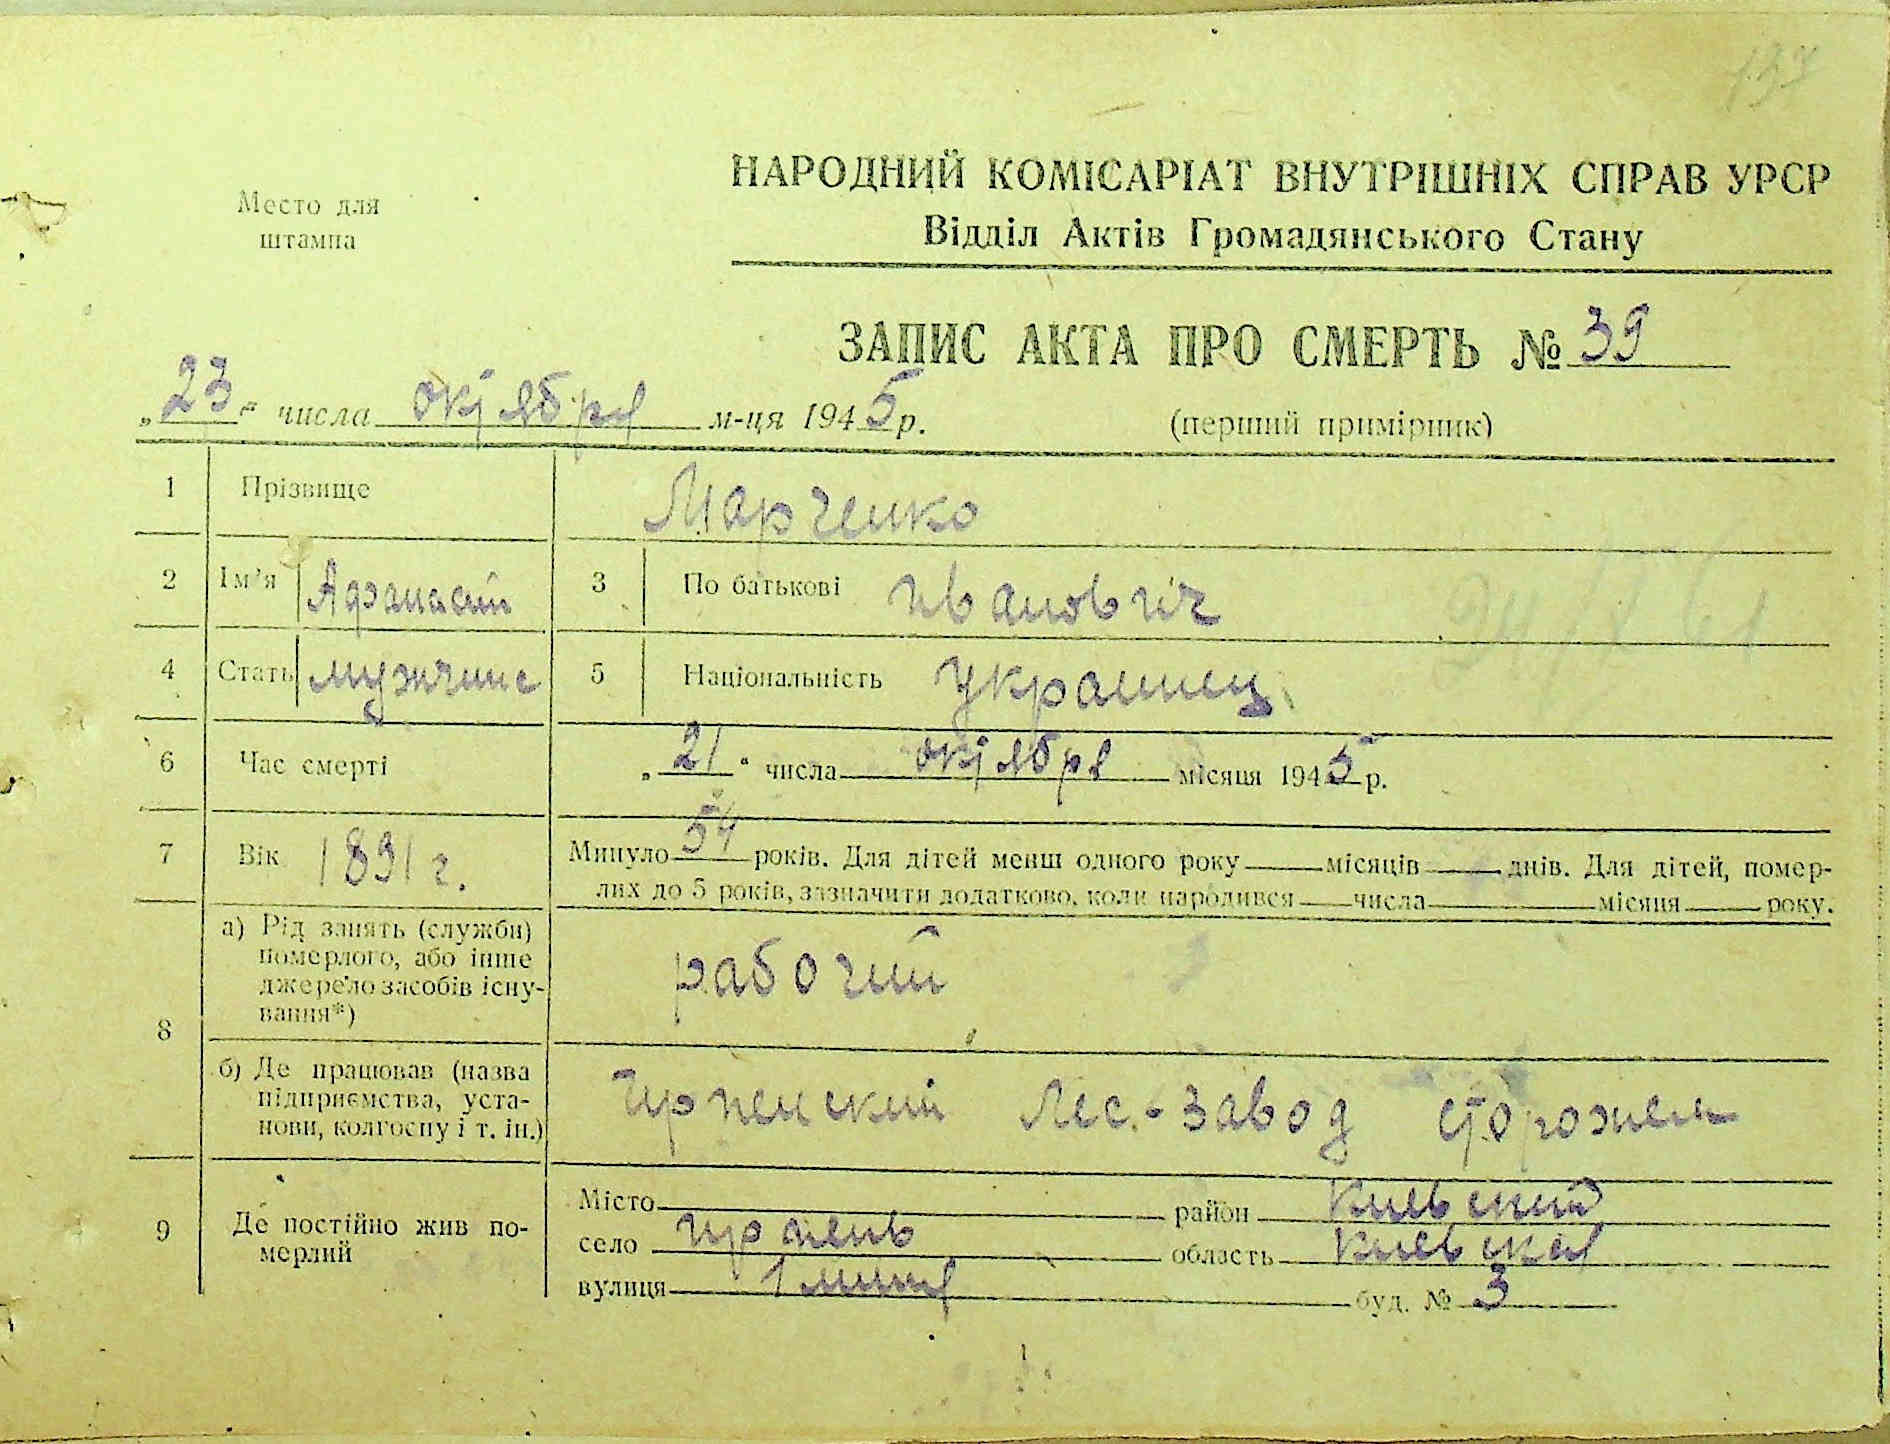 137
Место для
штампа
НАРОДНИЙ КОМІСАРІАТ ВНУТРІШНІХ СПРАВ УРСР
Відділ Актів Громадянського Стану
ЗАПИС АКТА ПРО СМЕРТЬ № 39
„23" числа октября м-ця 1945 р.
(перший примірник)
1 Прізвище Марченко
2 Ім'я Афанасий 3 По батькові Иванович
4 Стать мужчина 5 Національність Украинец
6 Час смерті „21" числа октября місяця 1945 р.
7 Вік 1891 г. Минуло 54 років. Для дітей менш одного року місяців днів. Для дітей, помер-
лих до 5 років, зазначити додатково, коли народився числа місяця року.
8 а) Рід занять (служби)
померлого, або інше
джерело засобів існу-
вання*)
рабочий
б) Де працював (назва
підприємства, уста-
нови, колгоспу і т. ін.)
Ирпенский Лес.-завод сторожем
9 Де постійно жив по-
мерлий
Місто район Киевский
село Ирпень область Киевская
вулиця 1 линия буд. № 3